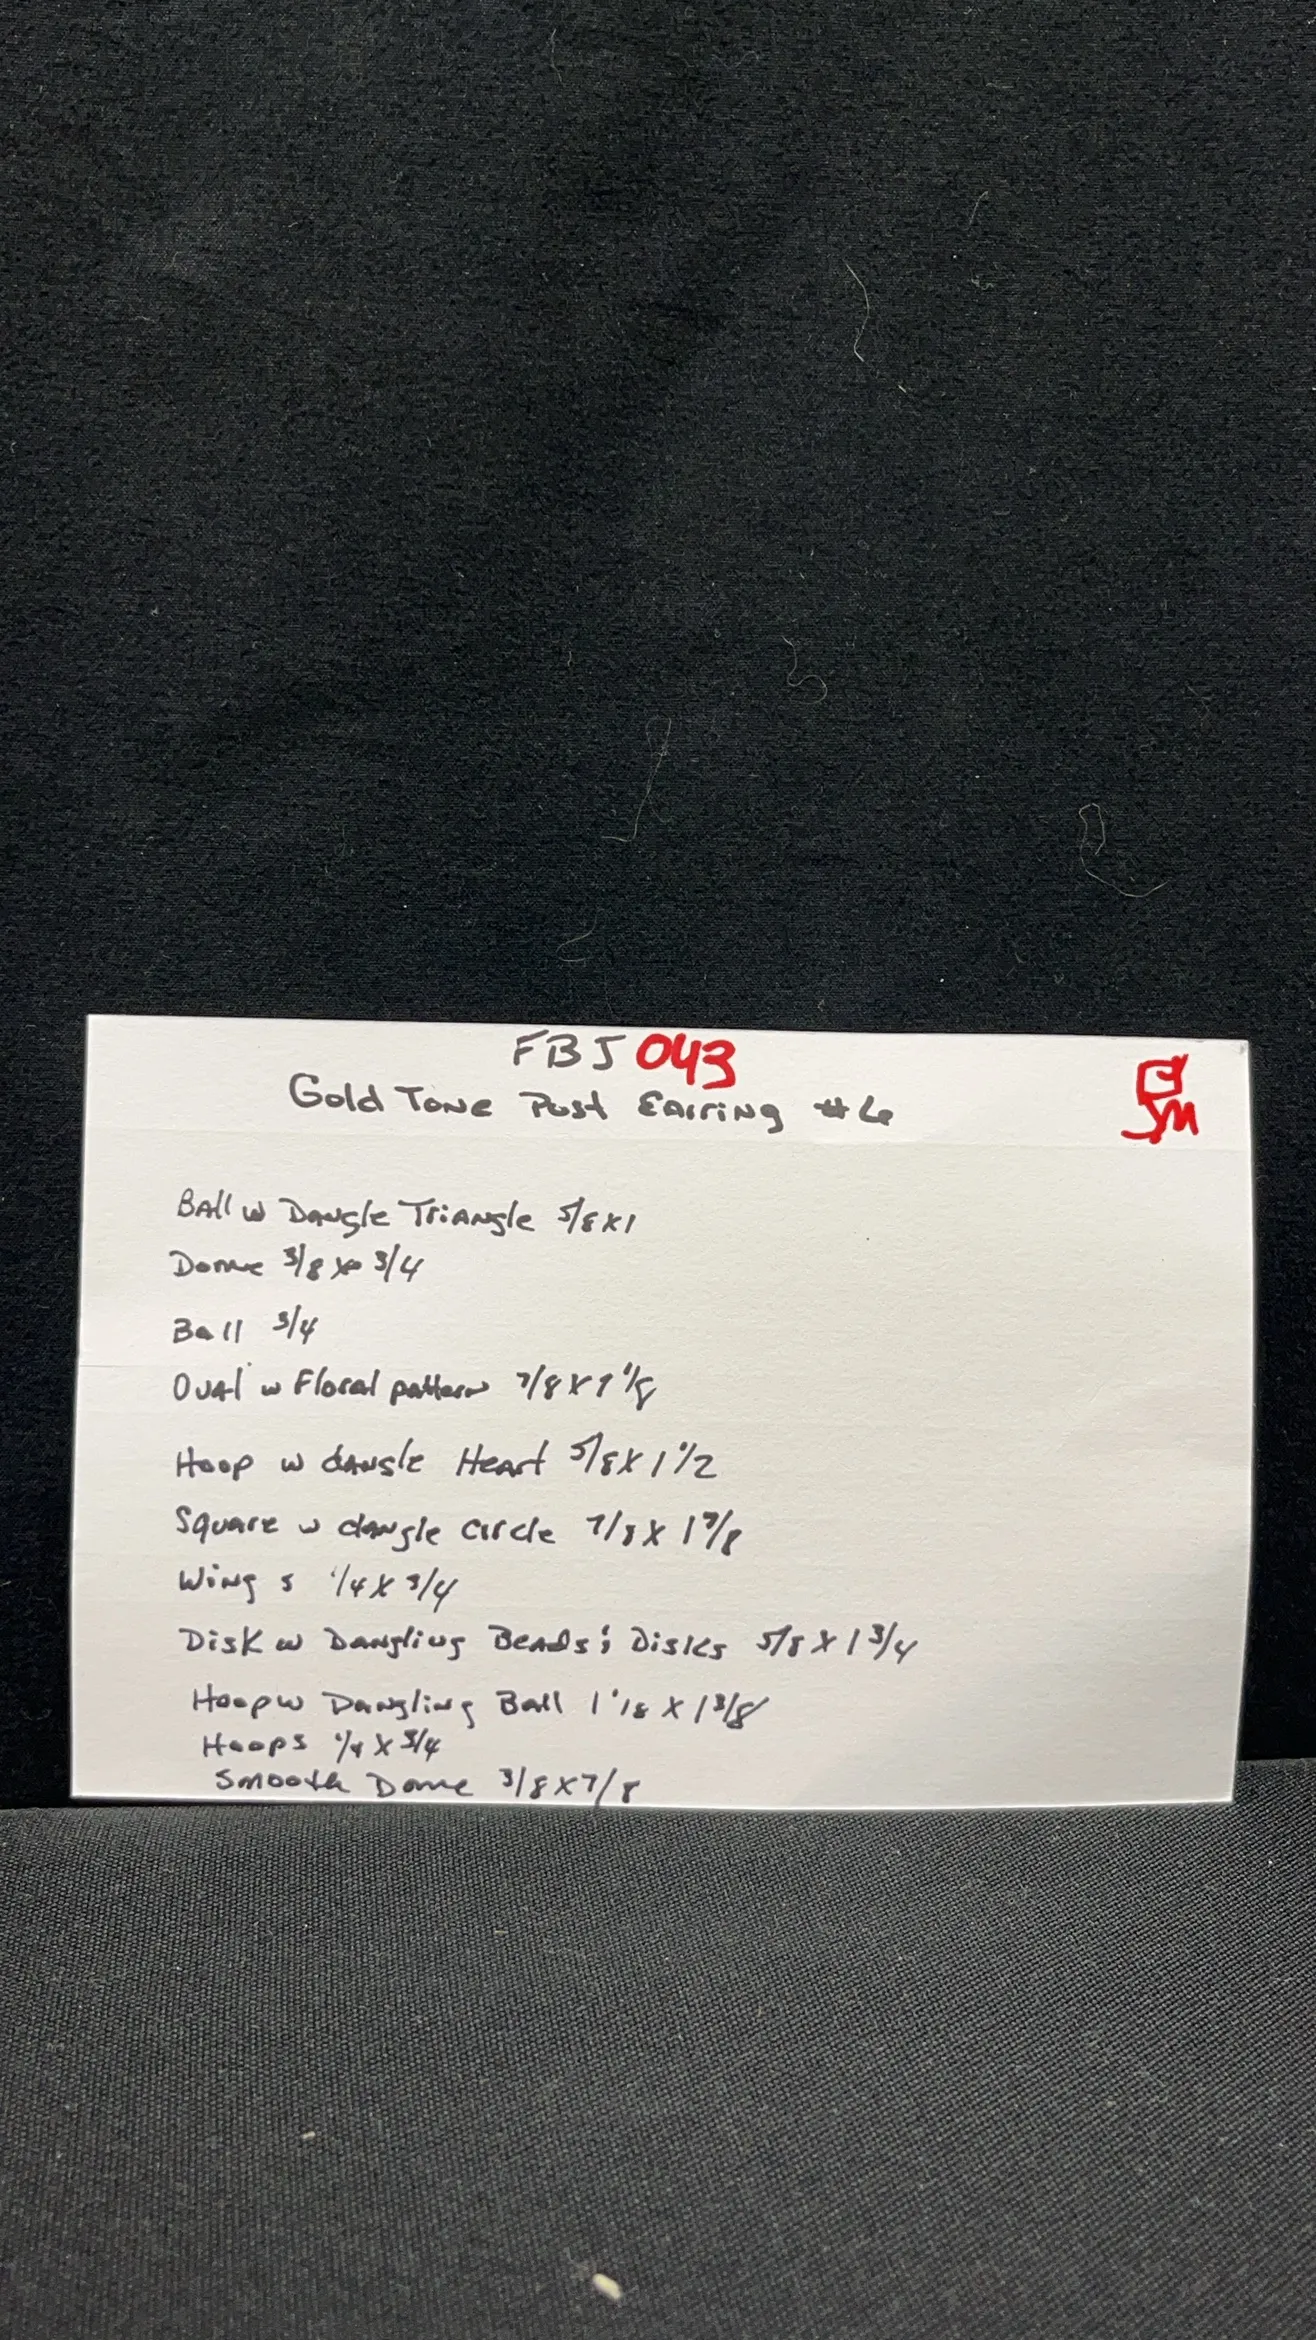 FBJ 043
Gold Tone Post Earring #6
Ball w Dangle Triangle 5/8 x 1
Dome 3/8 x 3/4
Ball 3/4
Oval w Floral pattern 7/8 x 1 1/8
Hoop w dangle Heart 5/8 x 1 1/2
Square w dangle circle 7/8 x 1 7/8
Wings 1/4 x 3/4
Disk w Dangling Beads & Disks 5/8 x 1 3/4
Hoop w Dangling Ball 1 1/8 x 1 3/8
Hoops 1/4 x 3/4
Smooth Dome 3/8 x 7/8